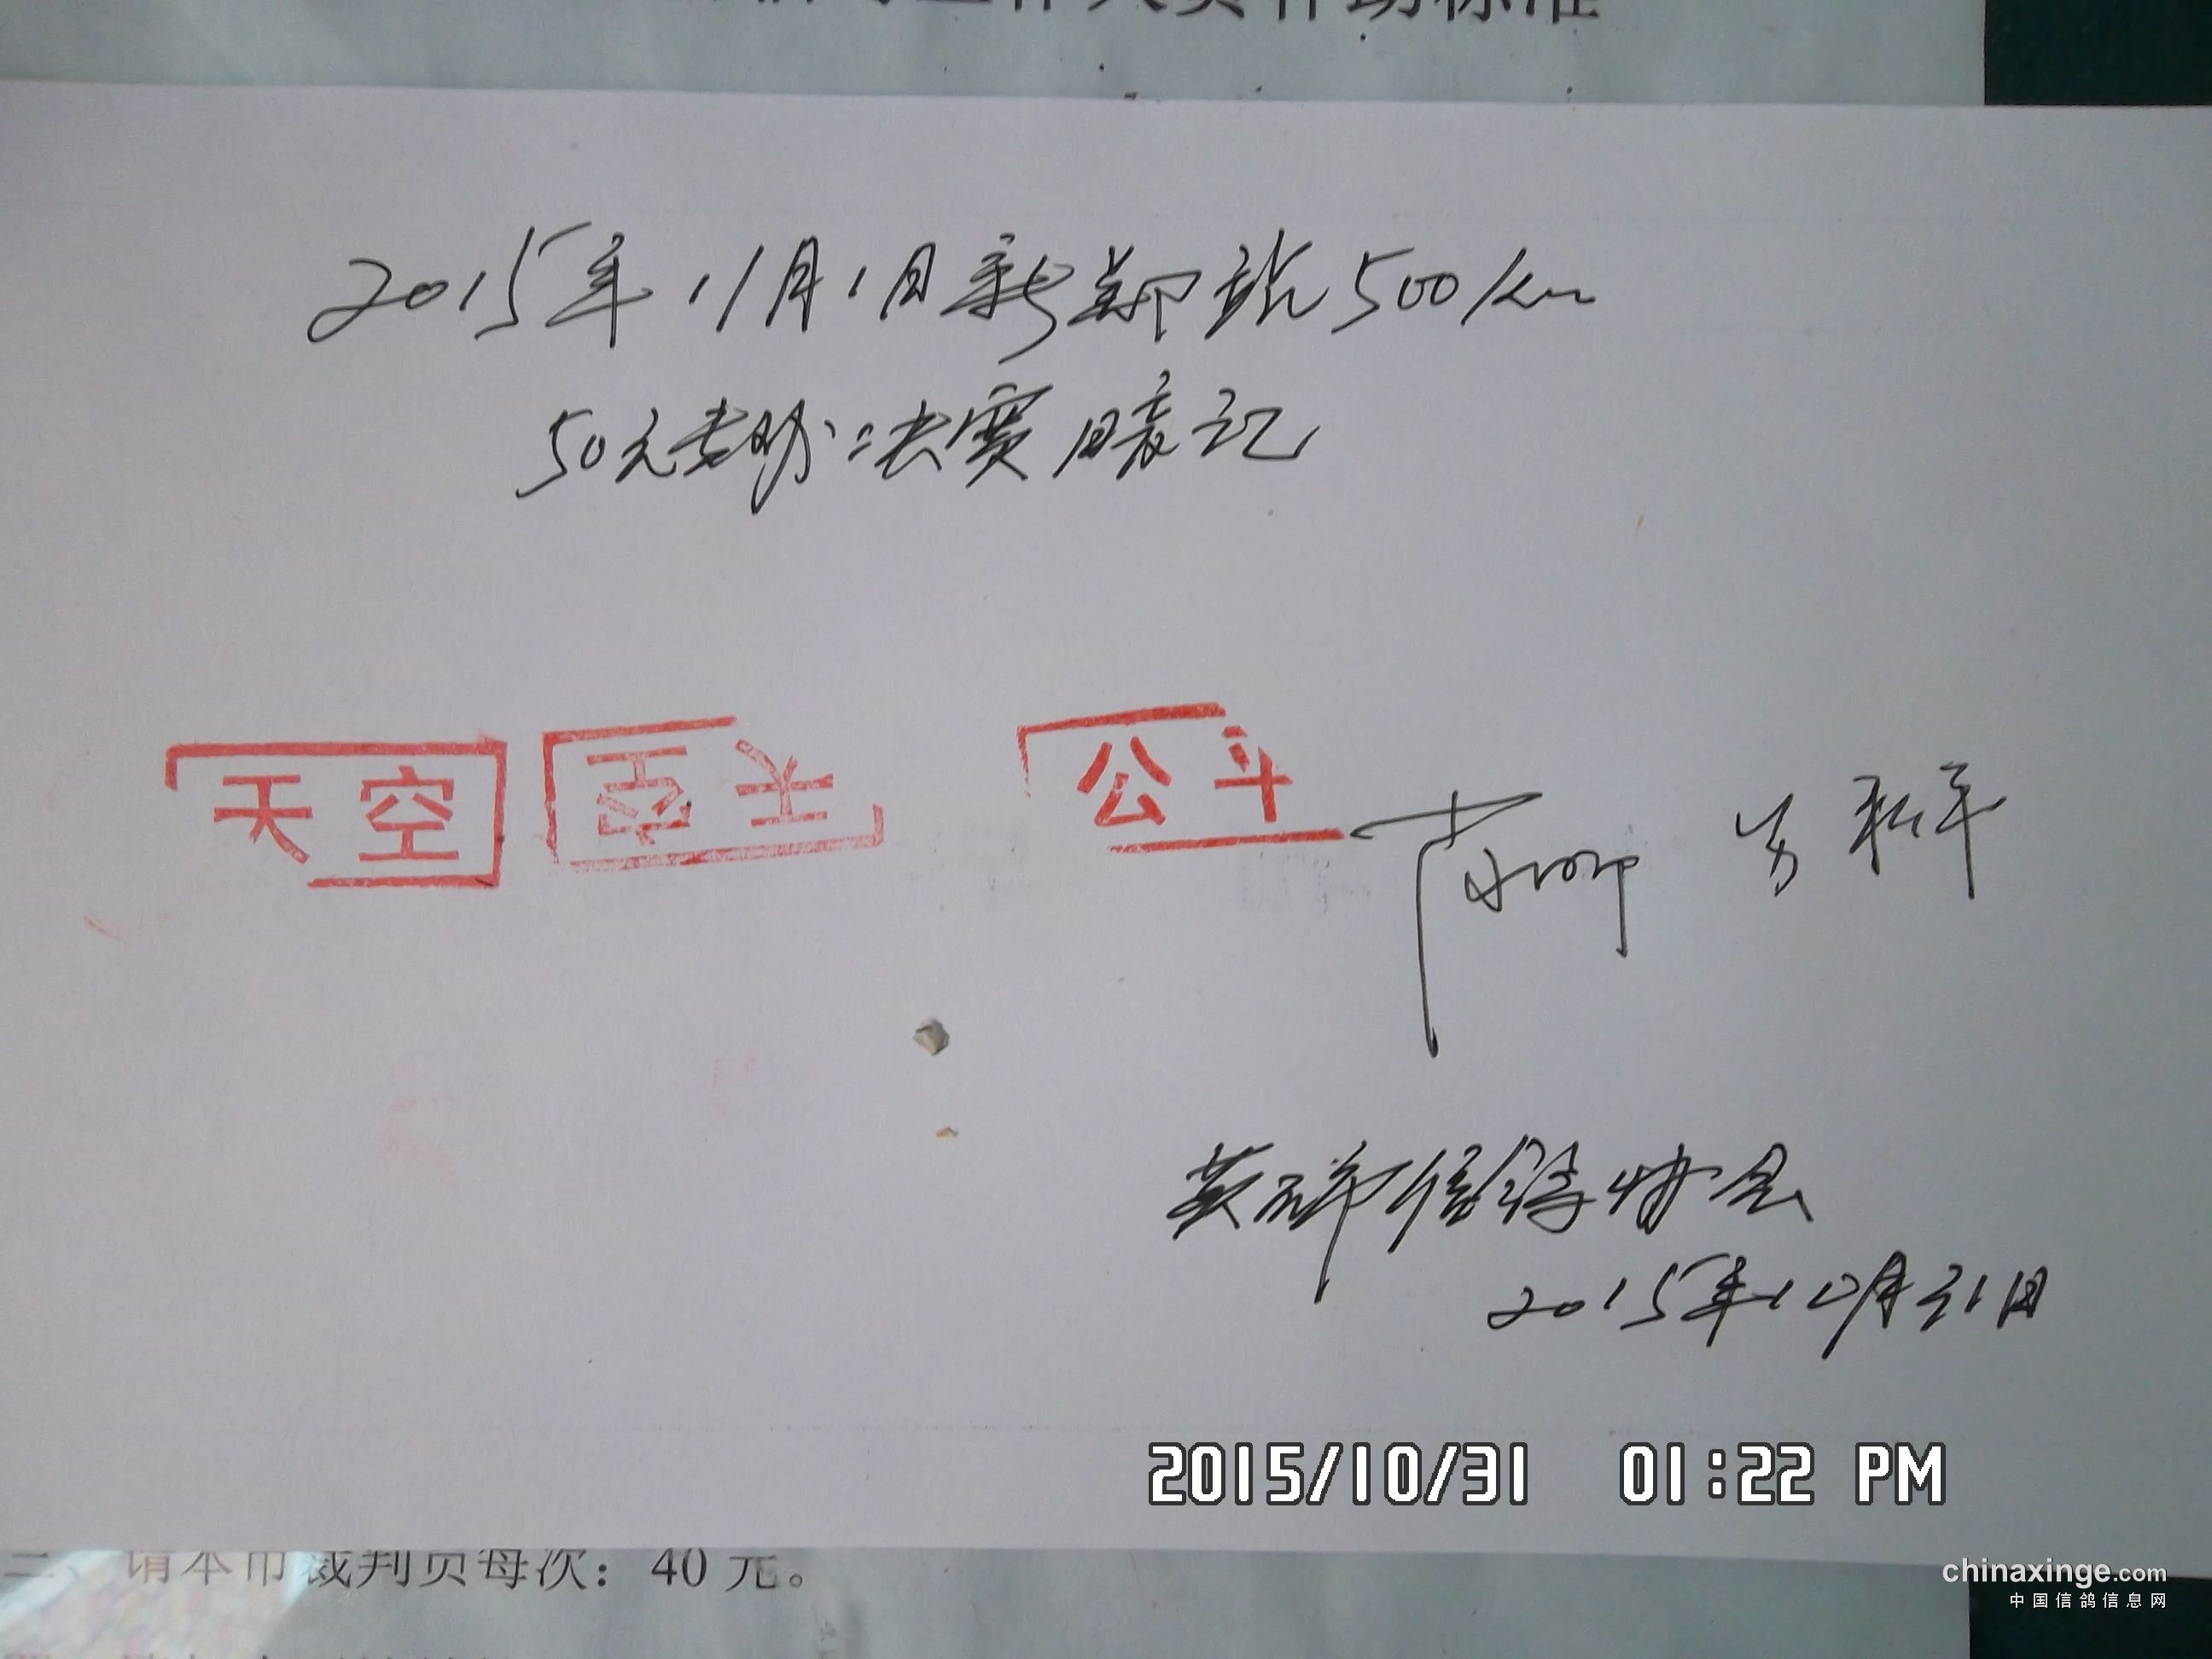 工作人员补助标准
2015年11月1日新郑站500km
50元老鸽决赛暗记
天空 天空 公斗
黄石市信鸽协会
2015年10月31日
2015/10/31 01:22 PM
三、请本市裁判员每次：40元。
chinaxinge.com
中国信鸽信息网